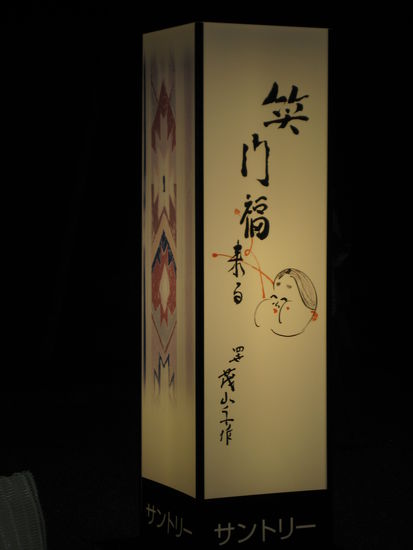 笑門福来る
四世 茂山千作
サントリー
サントリー